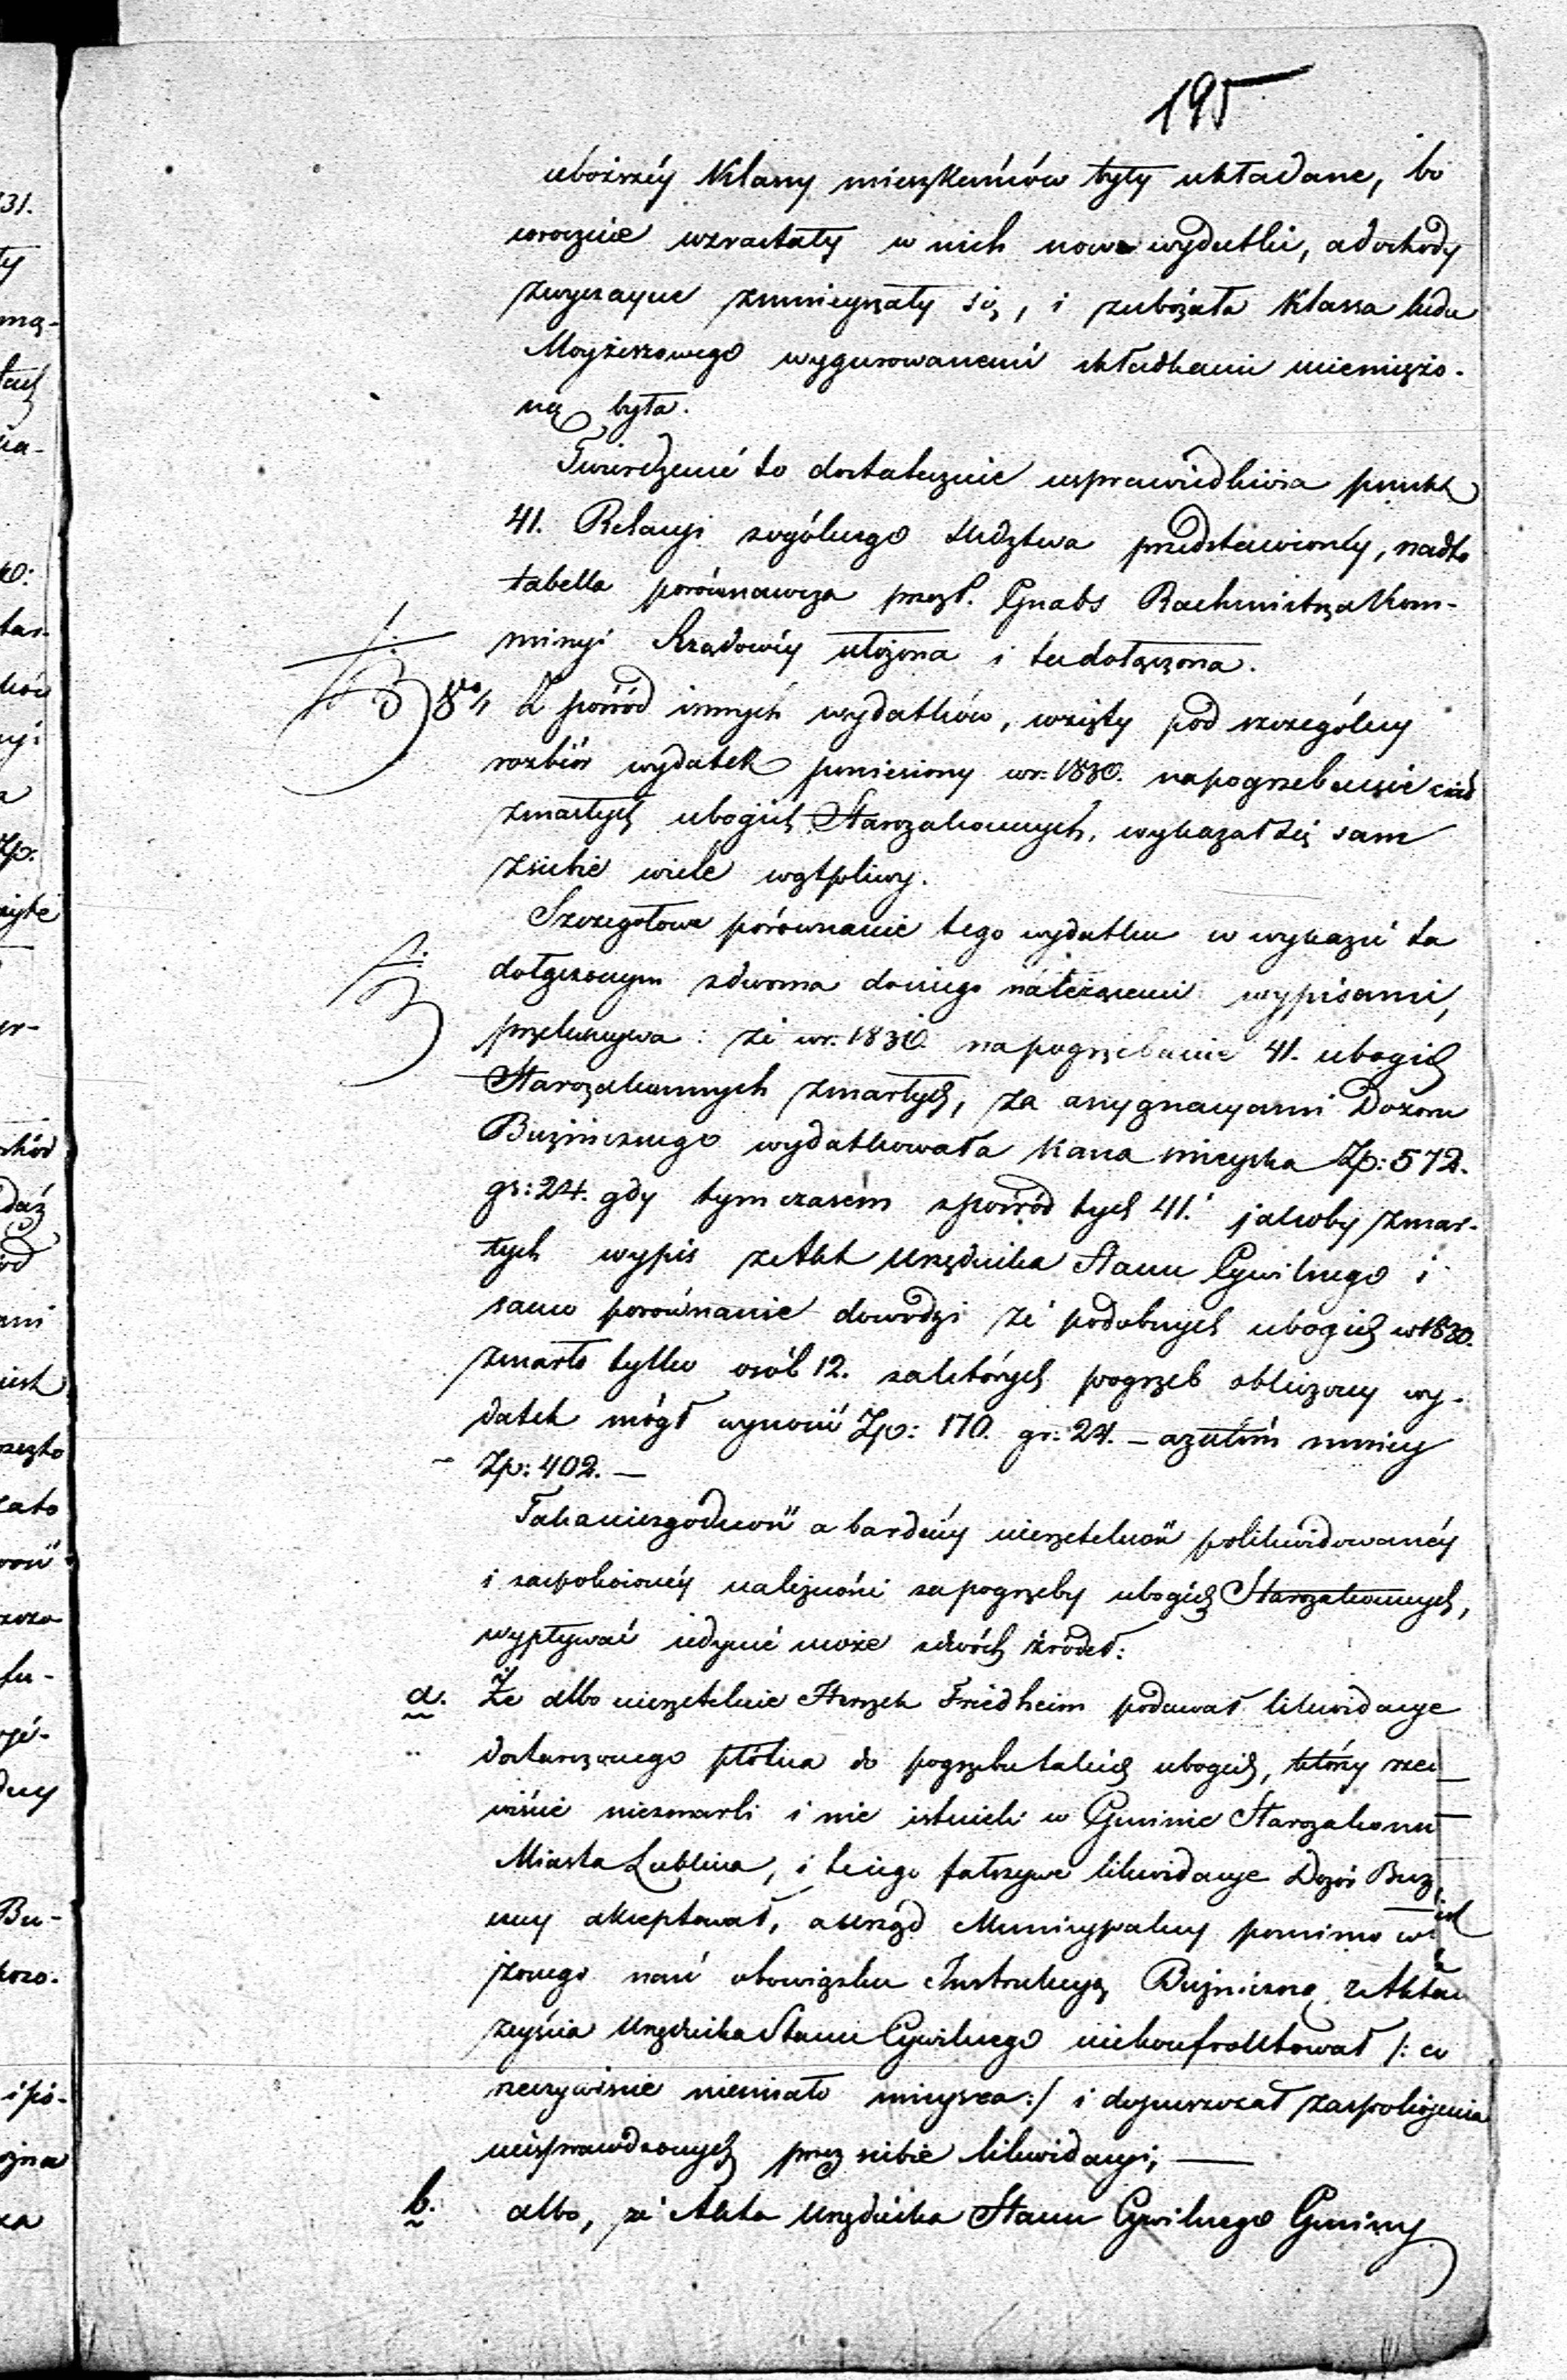 195
uboższéy Klassy mieszkańców były układane, bo
corocznie wzrastały w nich nowe wydatki, a dochody
zwyczayne zmnieyszały się, i zubożała Klassa ludu
Moyżeszowego wygurowanemi składkami uciemiężo-
ną była.
Twierdzenie to dostatecznie usprawiedliwia punkt
41. Relacyi z ogólnego śledztwa przedstawionéy, nadto
tabella porównawcza przez P. Gnabs Rachmistrza Kom-
missyi Rządowéy ułożona i tu dołączona.
8vo/ Z pośród innych wydatków, wzięty pod szczególny
rozbiór wydatek poniesiony w r: 1830. na pogrzebanie ciał
zmarłych ubogich Starozakonnych, wykazał się sam
z siebie wiele wątpliwy.
Szczegółowe porównanie tego wydatku w wykazie tu
dołączonym z dwoma do niego należącemi wypisami,
przekonywa: że w r: 1830. na pogrzebanie 41. ubogich
Starozakonnych zmarłych, za assygnacyami Dozoru
Bużnicznego wydatkowała Kassa mieyska Zp: 572.
gr: 24. gdy tym czasem z pośród tych 41. jakoby zmar-
łych wypis z Akt Urzędnika Stanu Cywilnego i
samo porównanie dowodzi że podobnych ubogich w 1830.
zmarło tylko osób 12. za których pogrzeb obliczony wy-
datek mógł wynosić Zp: 170. gr: 24. – a zatém mniey
Zp: 402. —
Taka niezgodność a bardziéy nierzetelność polikwidowanéy
i zaspokoionéy należności za pogrzeby ubogich Starozakonnych,
wypływać iedynie może z dwóch źródeł:
a. Że albo nierzetelnie Herszek Friedheim podawał likwidacye
dostarczonego płótna do pogrzebu takich ubogich, którzy rzeczy
wiście nie zmarli i nie istnieli w Gminie Starozakonn
Miasta Lublina, i te iego fałszywe likwidacye Dozór Buż
niczny akceptował, a Urząd Municypalny pomimo
żonego nań obowiązku Instrukcyą Bużniczną z Aktami
zeyścia Urzędnika Stanu Cywilnego nie konfrontował /: co
rzeczywiście niemiało mieysca :/ i dopuszczał zaspokojenia
niesprawdzonych przez siebie likwidacyi; —
b. albo, że Akta Urzędnika Stanu Cywilnego Gminy